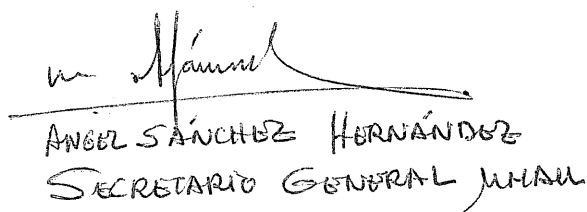 ANGEL SÁNCHEZ HERNÁNDEZ
SECRETARIO GENERAL